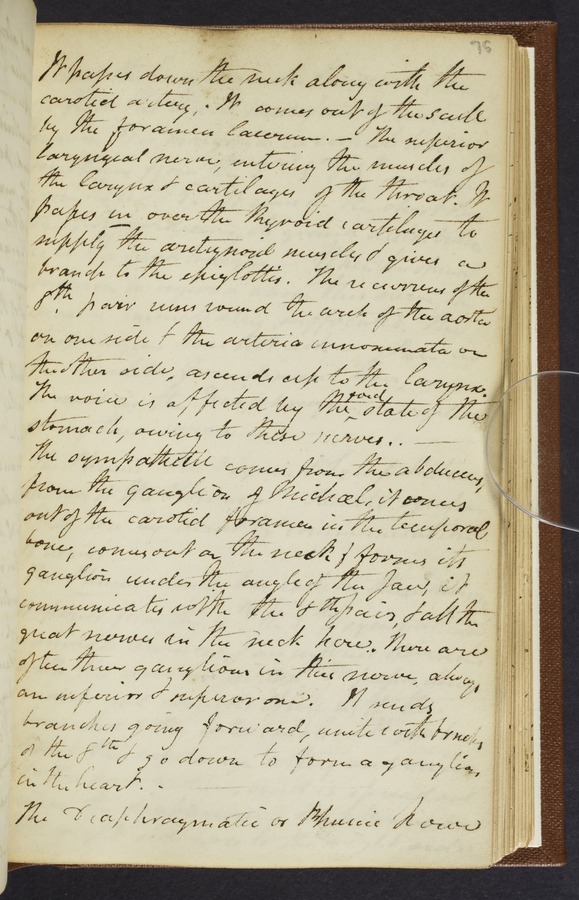 75
It passes down the neck along with the
carotid artery. It comes out of the scull
by the foramen lacerum. — The superior
laryngeal nerve, entering the muscles of
the larynx & cartilages of the throat. It
passes in over the thyroid cartilage to
supply the aretynoid muscles & gives a
branch to the epiglottis. The recurrens of the
8th pair runs round the arch of the aorta
on one side & the arteria innominata on
the other side, ascends up to the larynx.
The voice is affected by the state of the
stomach, owing to these nerves. —
The sympathetic comes from the abducens,
from the ganglion of Michael, it comes
out of the carotid foramen in the temporal
bone, comes out on the neck & forms its
ganglion under the angle of the Jaw, it
communicates with the 8th pair, & all the
great nerves in the neck here. There are
often three ganglions in this nerve, always
an inferior & superior one. It sends
branches going forward, unite with branchs
of the 8th & go down to form a ganglion
in the heart. -
The Diaphragmatic or Phrenic Nerve